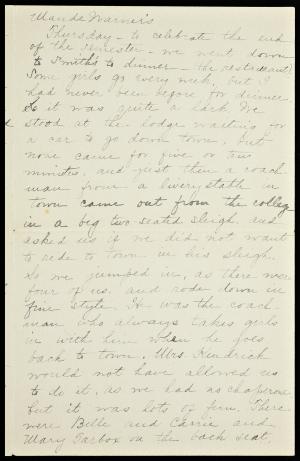 Maude Warner's
Thursday - to celebrate the end
of the semester - we went down
to Smith's to dinner - the restaurant.
Some girls go every week, but I
had never been before for dinner.
So it was quite a lark. We
stood at the lodge waiting for
a car to go down town, but
none came for five or ten
minutes, and just then a coach
man from a livery stable in
town came out from the college
in a big two-seated sleigh, and
asked us if we did not want
to ride to town in his sleigh.
So we jumped in, as there were
four of us, and rode down in
fine style. It was the coach-
man who always takes girls
in with him when he goes
back to town. Mrs. Kendrick
would not have allowed us
to do it, as we had no chaperone,
but it was lots of fun. There
were Belle and Carrie and
Mary Tarbox on the back seat,